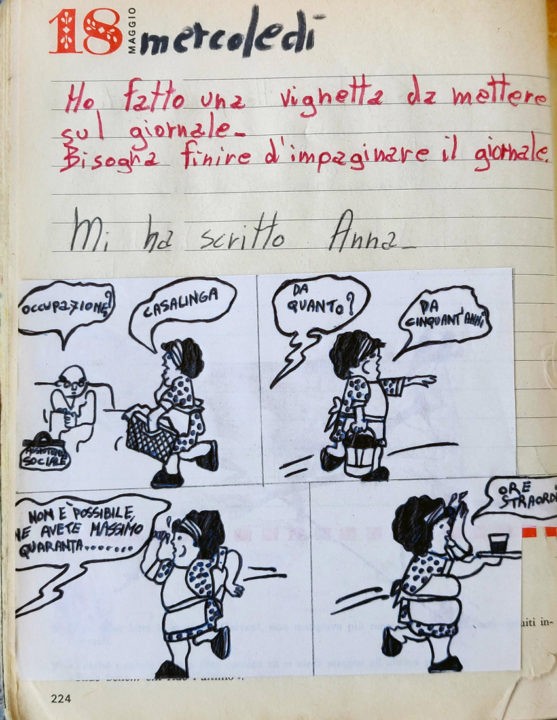 18 MAGGIO mercoledì
Ho fatto una vignetta da mettere
sul giornale_
Bisogna finire d'impaginare il giornale.
Mi ha scritto Anna_
OCCUPAZIONE?
CASALINGA
DA
QUANTO?
DA
CINQUANT'ANNI
SOCIALE
NON E POSSIBILE,
NE AVETE MASSIMO
QUARANTA........
ORE
STRAORDI
uiti in-
224